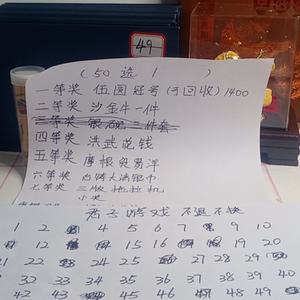 49
(50选1)
一等奖 伍圆冠号(可回收)1400
二等奖 沙金牛一件
三等奖 银碗三件套
四等奖 洪武通钱
五等奖 摩根贸易洋
六等奖 古牌大清银币
七等奖 三版拖拉机
君子游戏 不退不换
1 2 4 5 6 7 9 10
12 14 15 16 19 20
21 22 24 25 27 28 29 30
32 33 34 35 36 37 38 39 40
42 44 45 46 47 48 49